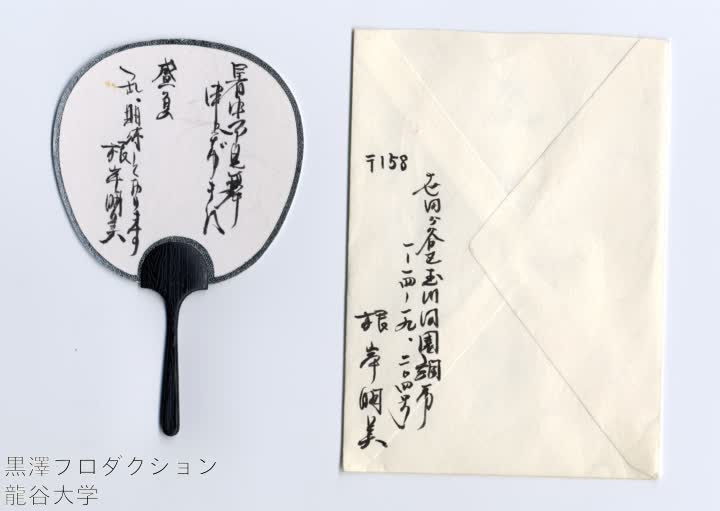 暑中お見舞
申し上げます
盛夏
期待しております
根岸明美
〒158
世田ヶ谷区玉川田園調布
一ー一四ー一九、二〇四号
根岸明美
黒澤フロダクション
龍谷大学